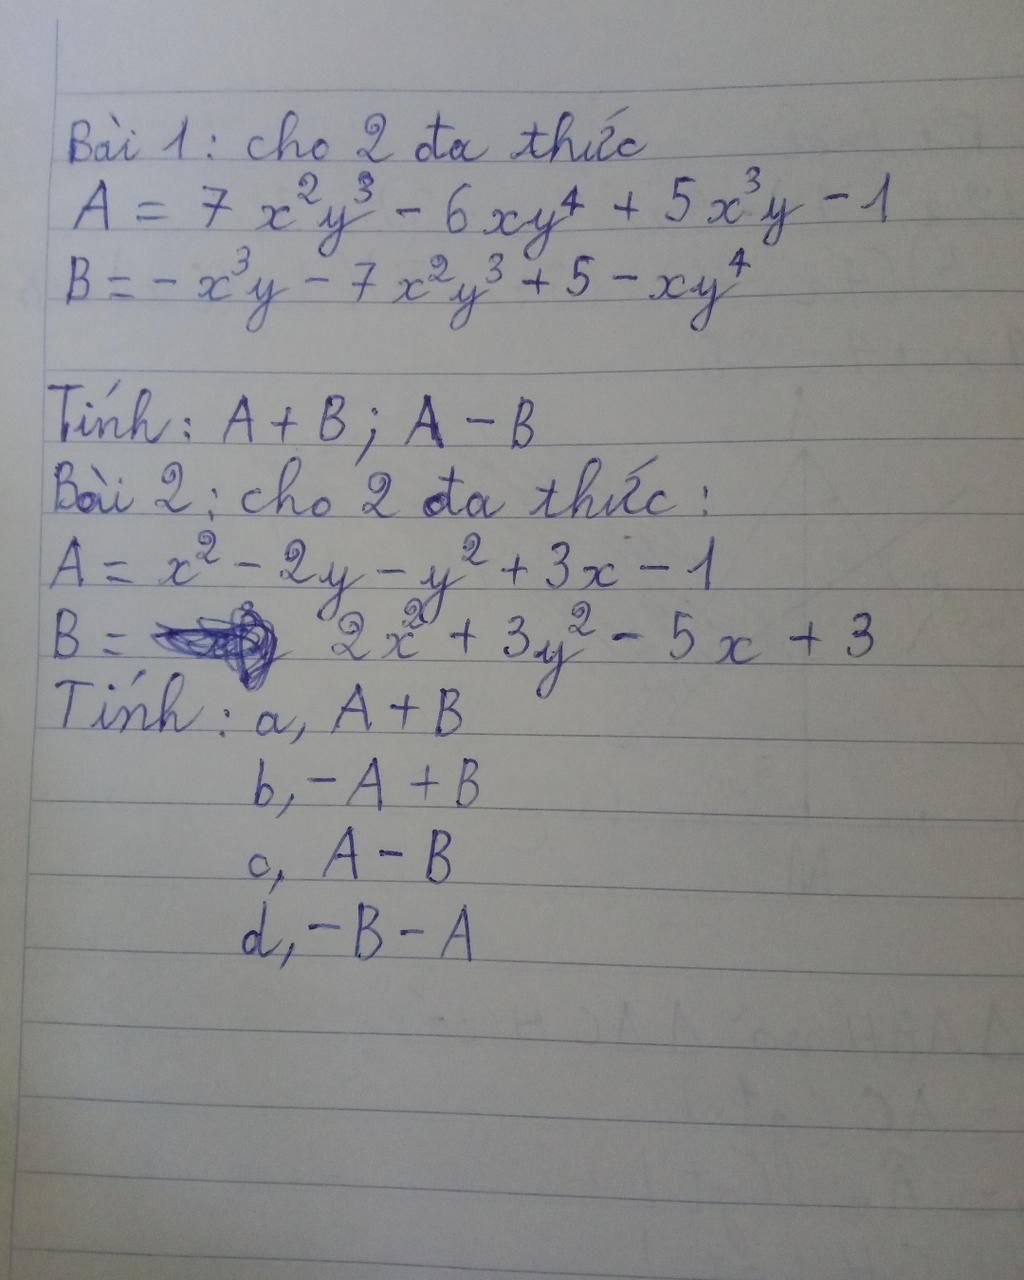 Bài 1: cho 2 đa thức
A = 7x²y³ - 6xy⁴ + 5x³y - 1
B = - x³y - 7x²y³ + 5 - xy⁴
Tính: A + B ; A - B
Bài 2: cho 2 đa thức:
A = x² - 2y - y² + 3x - 1
B = 2x² + 3y² - 5x + 3
Tính: a, A + B
b, - A + B
c, A - B
d, - B - A